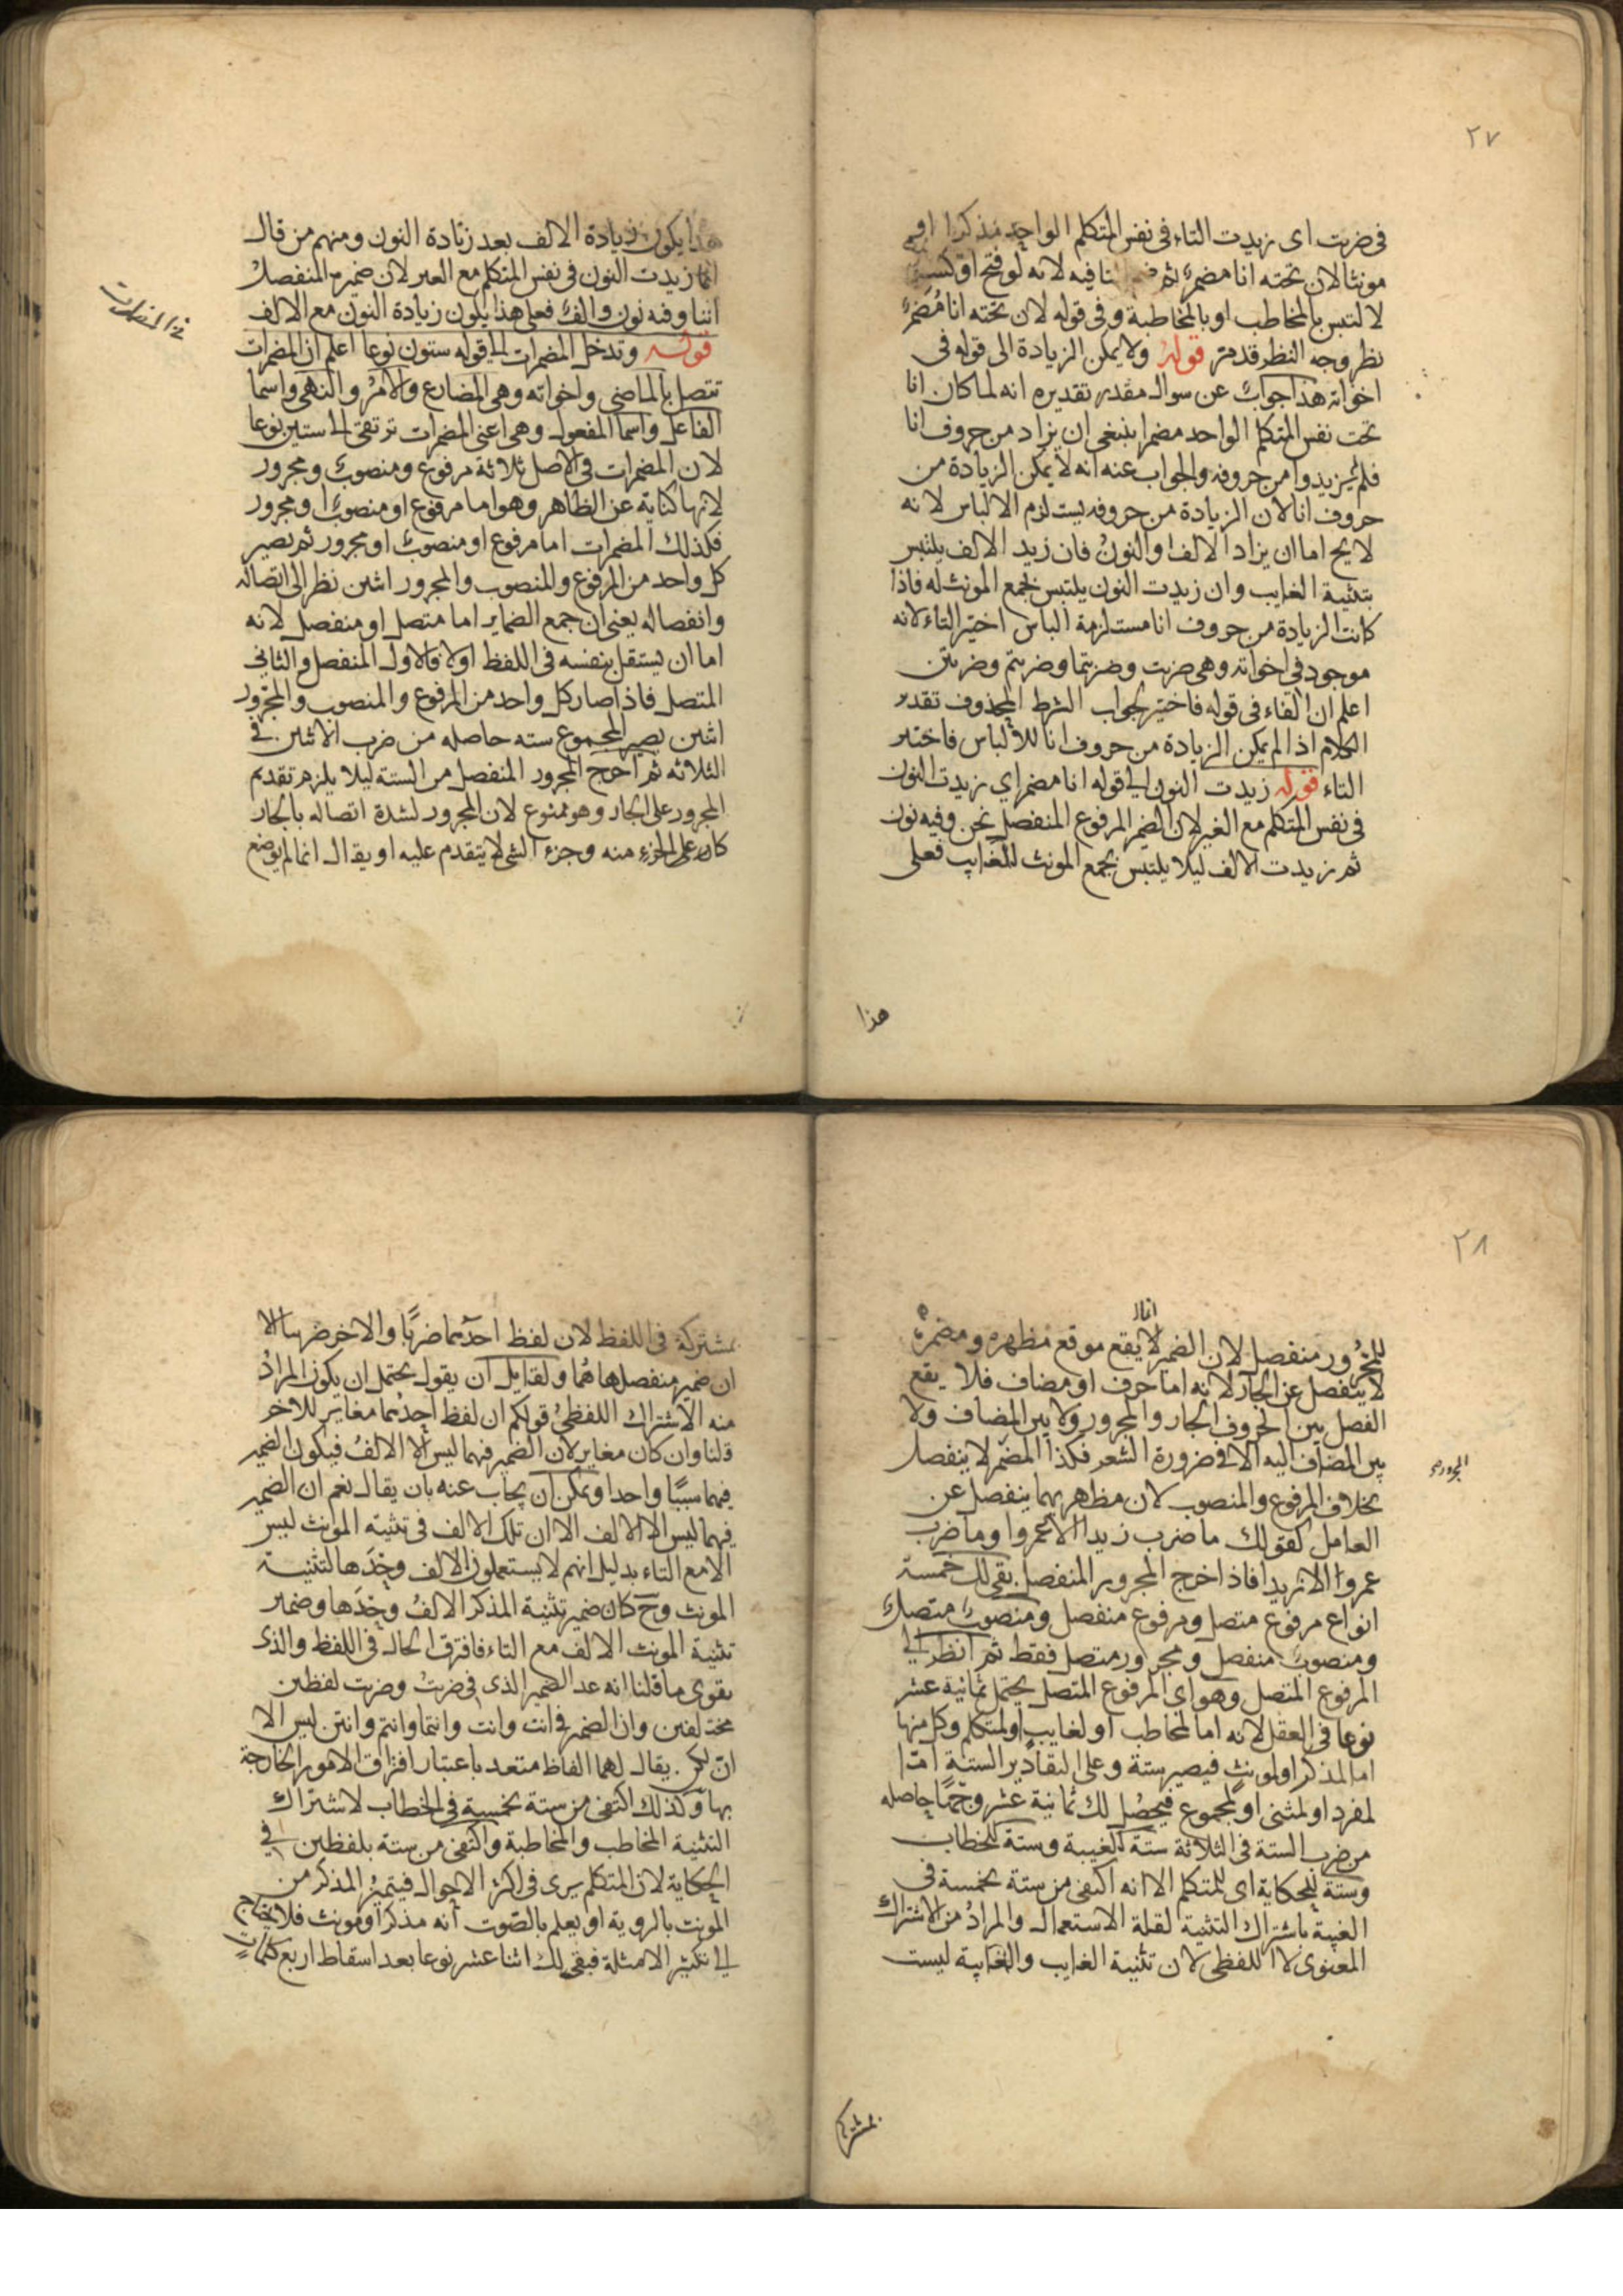 ٢٧
فى ضربت اى زيدت التاء فى نفس المتكلم الواحد مذكرا او
مونثا لان تحته انا مضمر ثم فيه لانه لو فتح او كسر
لالتبس بالمخاطب او بالمخاطبة وفى قوله لان تحته انا مُضمر
نظر وجه النظر قد مر قوله ولا يمكن الزيادة الى قوله فى
اخواته هذا جواب عن سوال مقدر تقديره انه لما كان انا
تحت نفس المتكلم الواحد مضمرا ينبغى ان يزاد من حروف انا
فلم يزيدوا من حروفه والجواب عنه انه لا يمكن الزيادة من
حروف انا لان الزيادة من حروفه يستلزم الالتباس لانه
لا يخ اما ان يزاد الالف او النون فان زيد الالف يلتبس
بتثنية الغايب وان زيدت النون يلتبس بجمع المونث له فاذا
كانت الزيادة من حروف انا مستلزمة الباس اختير التاء لانه
موجود فى اخواته وهى ضربت وضربتما وضربتم وضربتن
اعلم ان الفاء فى قوله فاختير لجواب الشرط المحذوف تقدير
الكلام اذا لم يمكن الزيادة من حروف انا للالباس فاختير
التاء قوله زيدت النون الى قوله انا مضمر اي زيدت النون
فى نفس المتكلم مع الغير لان الضمير المرفوع المنفصل نحن وفيه نون
ثم زيدت الالف ليلا يلتبس بجمع المونث للغايب فعلى
هذا
هذا يكون زيادة الالف بعد زيادة النون ومنهم من قال
انما زيدت النون فى نفس المتكلم مع الغير لان ضميره المنفصل
اننا وفيه نون والف فعلى هذا يكون زيادة النون مع الالف
قوله وتدخل المضمرات الى قوله ستون نوعا اعلم ان المضمرات
تتصل بالماضى واخواته وهى المضارع والامر والنهى واسما
الفاعل واسما المفعول وهى اعنى المضمرات ترتقى الى ستين نوعا
لان المضمرات فى الاصل ثلاثة مرفوع ومنصوب ومجرور
لانها كناية عن الظاهر وهو اما مرفوع او منصوب او مجرور
فكذلك المضمرات اما مرفوع او منصوب او مجرور ثم يصير
كل واحد من المرفوع والمنصوب والمجرور اثنين نظر الى اتصاله
وانفصاله يعنى ان جمع الضماير اما متصل او منفصل لانه
اما ان يستقل بنفسه فى اللفظ اولا فالاول المنفصل والثانى
المتصل فاذا صار كل واحد من المرفوع والمنصوب والمجرور
اثنين يصير المجموع ستة حاصله من ضرب الاثنين فى
الثلاثه ثم اخرج المجرور المنفصل من الستة ليلا يلزم تقديم
المجرور على الجار وهو ممنوع لان المجرور لشدة اتصاله بالجار
كان على الجزء منه وجزء الشى لا يتقدم عليه او يقال انما لم يوضع
فى المضمرات
٢٨
للمجرور منفصل لان الضمير لا يقع موقع مظهره ومضمره
لا ينفصل عن الجار لانه اما حرف او مضاف فلا يقع
الفصل بين الحروف الجار والمجرور ولا بين المضاف ولا
بين المضاف اليه الا فى ضرورة الشعر فكذا المضمر لا ينفصل
بخلاف المرفوع والمنصوب لان مظهريهما ينفصل عن
العامل كقولك ما ضرب زيدا الا عمروا وما ضرب
عمروا الا زيدا فاذا اخرج المجرور المنفصل بقى لك خمسة
انواع مرفوع متصل ومرفوع منفصل ومنصوب متصل
ومنصوب منفصل ومجرور متصل فقط ثم انظر الى
المرفوع المتصل وهو اى المرفوع المتصل يحتمل ثمانية عشر
نوعا فى العقل لانه اما لمخاطب او لغايب او لمتكلم وكل منها
اما لمذكر او لمونث فيصير ستة وعلى التقادير الستة اما
لمفرد او لمثنى او لمجموع فيحصل لك ثمانية عشر وجها حاصله
من ضرب الستة فى الثلاثة ستة للغيبة وستة للخطاب
وستة للحكاية اى للمتكلم الا انه اكتفى من ستة بخمسة فى
الغيبة باشتراك التثنية لقلة الاستعمال والمراد من الاشتراك
المعنوى لا اللفظى لان تثنية الغايب والغايبة ليست
بمشتركة
مشتركة فى اللفظ لان لفظ احدهما ضربا والاخر ضربتا الا
ان ضمير منفصلها هما ولقايل ان يقول يحتمل ان يكون المراد
منه الاشتراك اللفظى قولكم ان لفظ احدهما مغاير للاخر
قلنا وان كان مغاير لان الضمير فيهما ليس الا الالف فيكون الضمير
فيهما سببًا واحدا ويمكن ان يجاب عنه بان يقال نعم ان الضمير
فيهما ليس الا الالف الا ان تلك الالف فى تثنية المونث ليس
الا مع التاء بدليل انهم لا يستعملون الالف وحدها لتثنية
المونث وح كان ضمير تثنية المذكر الالف وحدها وضمير
تثنية المونث الالف مع التاء فافترق الحال فى اللفظ والذى
يقوى ما قلنا انه عد الضمير الذى فى ضربتُ وضربت لفظين
مختلفين وان الضمير فى انت وانت وانتما وانتم وانتن ليس الا
ان لكن يقال لهما الفاظ متعدد باعتبار افتراق الامور الخارجة
بها وكذلك اكتفى من ستة بخمسة فى الخطاب لاشتراك
التثنية المخاطب والمخاطبة واكتفى من ستة بلفظين فى
الحكاية لان المتكلم يرى فى اكثر الاحوال فيتميز المذكر من
المونث بالروية او يعلم بالصوت انه مذكر او مونث فلا يحتاج
الى تكثير الامثلة فبقى لك اثنا عشر نوعا بعد اسقاط اربع كلمات